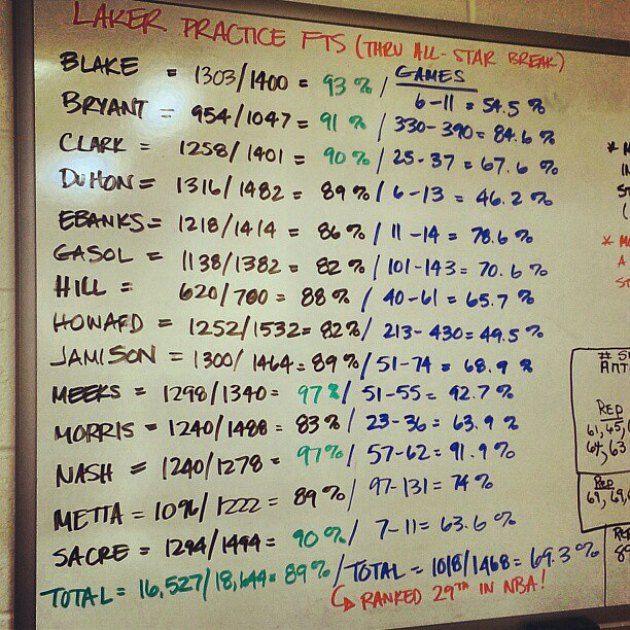 LAKER PRACTICE FTS (THRU ALL-STAR BREAK)
GAMES
BLAKE = 1303/1400 = 93% / 6-11 = 54.5%
BRYANT = 954/1047 = 91% / 330-390 = 84.6%
CLARK = 1258/1401 = 90% / 25-37 = 67.6%
DUHON = 1316/1482 = 89% / 6-13 = 46.2%
EBANKS = 1218/1414 = 86% / 11-14 = 78.6%
GASOL = 1138/1382 = 82% / 101-143 = 70.6%
HILL = 620/700 = 88% / 40-61 = 65.7%
HOWARD = 1252/1532 = 82% / 213-430 = 49.5%
JAMISON = 1300/1464 = 89% / 51-74 = 68.9%
MEEKS = 1298/1340 = 97% / 51-55 = 92.7%
MORRIS = 1240/1488 = 83% / 23-36 = 63.9%
NASH = 1240/1278 = 97% / 57-62 = 91.9%
METTA = 1096/1222 = 89% / 97-131 = 74%
SACRE = 1294/1444 = 90% / 7-11 = 63.6%
TOTAL = 16,527/18,644 = 89% / TOTAL = 1018/1468 = 69.3%
RANKED 29TH IN NBA!
RED
61, 45,
64, 63
RED
69, 69,